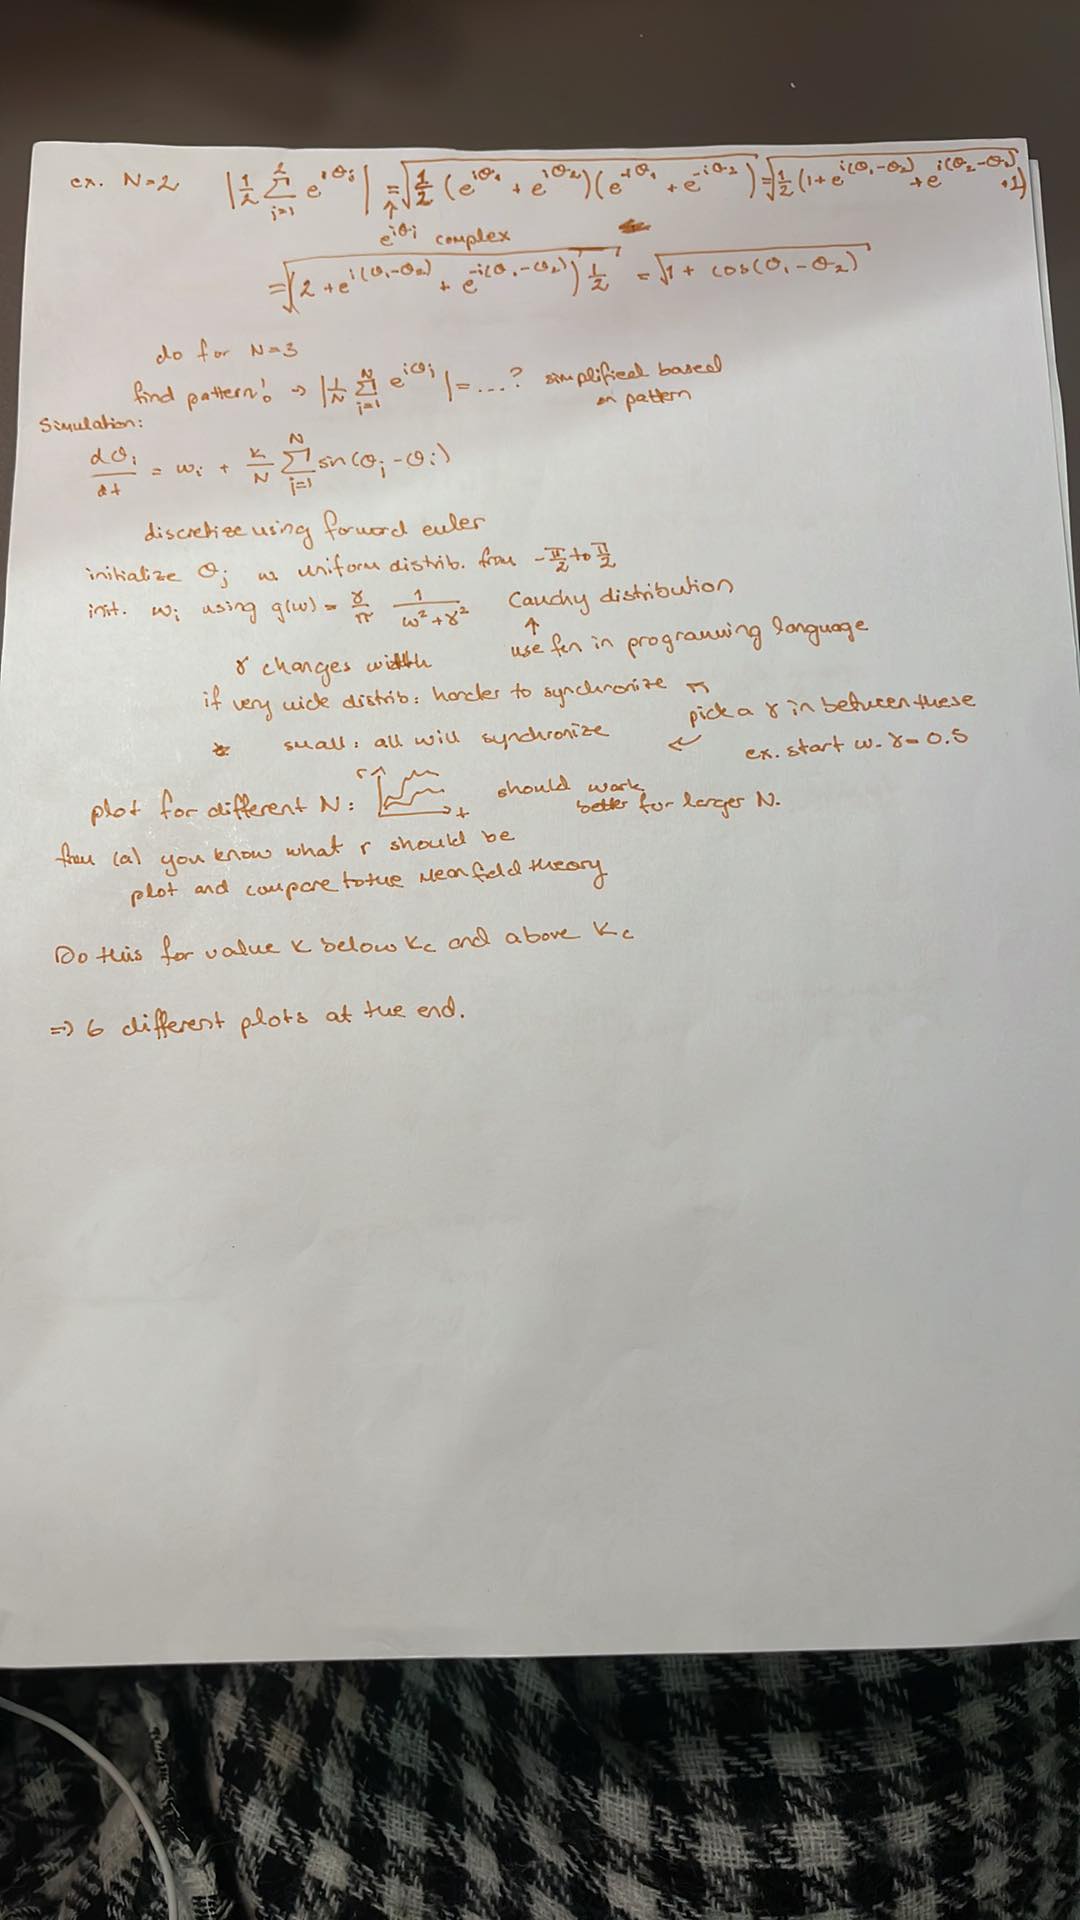 ex. N=2 |1/2 Σ_{j=1}^{2} e^{iθ_j}| = √(1/2 (e^{iθ_1} + e^{iθ_2})(e^{-iθ_1} + e^{-iθ_2})) = √(1/2 (1 + e^{i(θ_1-θ_2)} + e^{i(θ_2-θ_1)} + 1))
↑
e^{iθ_j} complex
= √((2 + e^{i(θ_1-θ_2)} + e^{-i(θ_1-θ_2)}) 1/2) = √(1 + cos(θ_1 - θ_2))
do for N=3
find pattern! → |1/N Σ_{j=1}^{N} e^{iθ_j}| = ...? simplified based
on pattern
Simulation:
dθ_i/dt = ω_i + K/N Σ_{j=1}^{N} sin(θ_j - θ_i)
discretize using forward euler
initialize θ_j w. uniform distrib. from -π/2 to π/2
init. ω_i using g(ω) = γ/π 1/(ω² + γ²) Cauchy distribution
↑
γ changes width use fcn in programming language
if very wide distrib: harder to synchronize
small: all will synchronize
pick a γ in between these
ex. start w. γ=0.5
plot for different N: r t should work
better for larger N.
from (a) you know what r should be
plot and compare to the mean field theory
Do this for value K below K_c and above K_c
⇒ 6 different plots at the end.